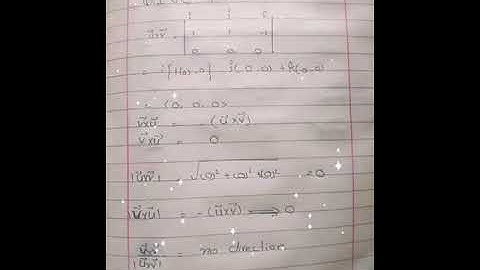 i j k
u⃗×v⃗ = | 1 1 -1 |
0 0 0
= i[1(0)-0] j(0-0) + k(0-0)
= (0, 0, 0)
v⃗×u⃗ = -(u⃗×v⃗)
v⃗×u⃗ = 0
|u⃗×v⃗| = √(0)²+(0)²+(0)² = 0
|v⃗×u⃗| = -(u⃗×v⃗) ⟹ 0
u⃗×v⃗ / |u⃗×v⃗| = no direction